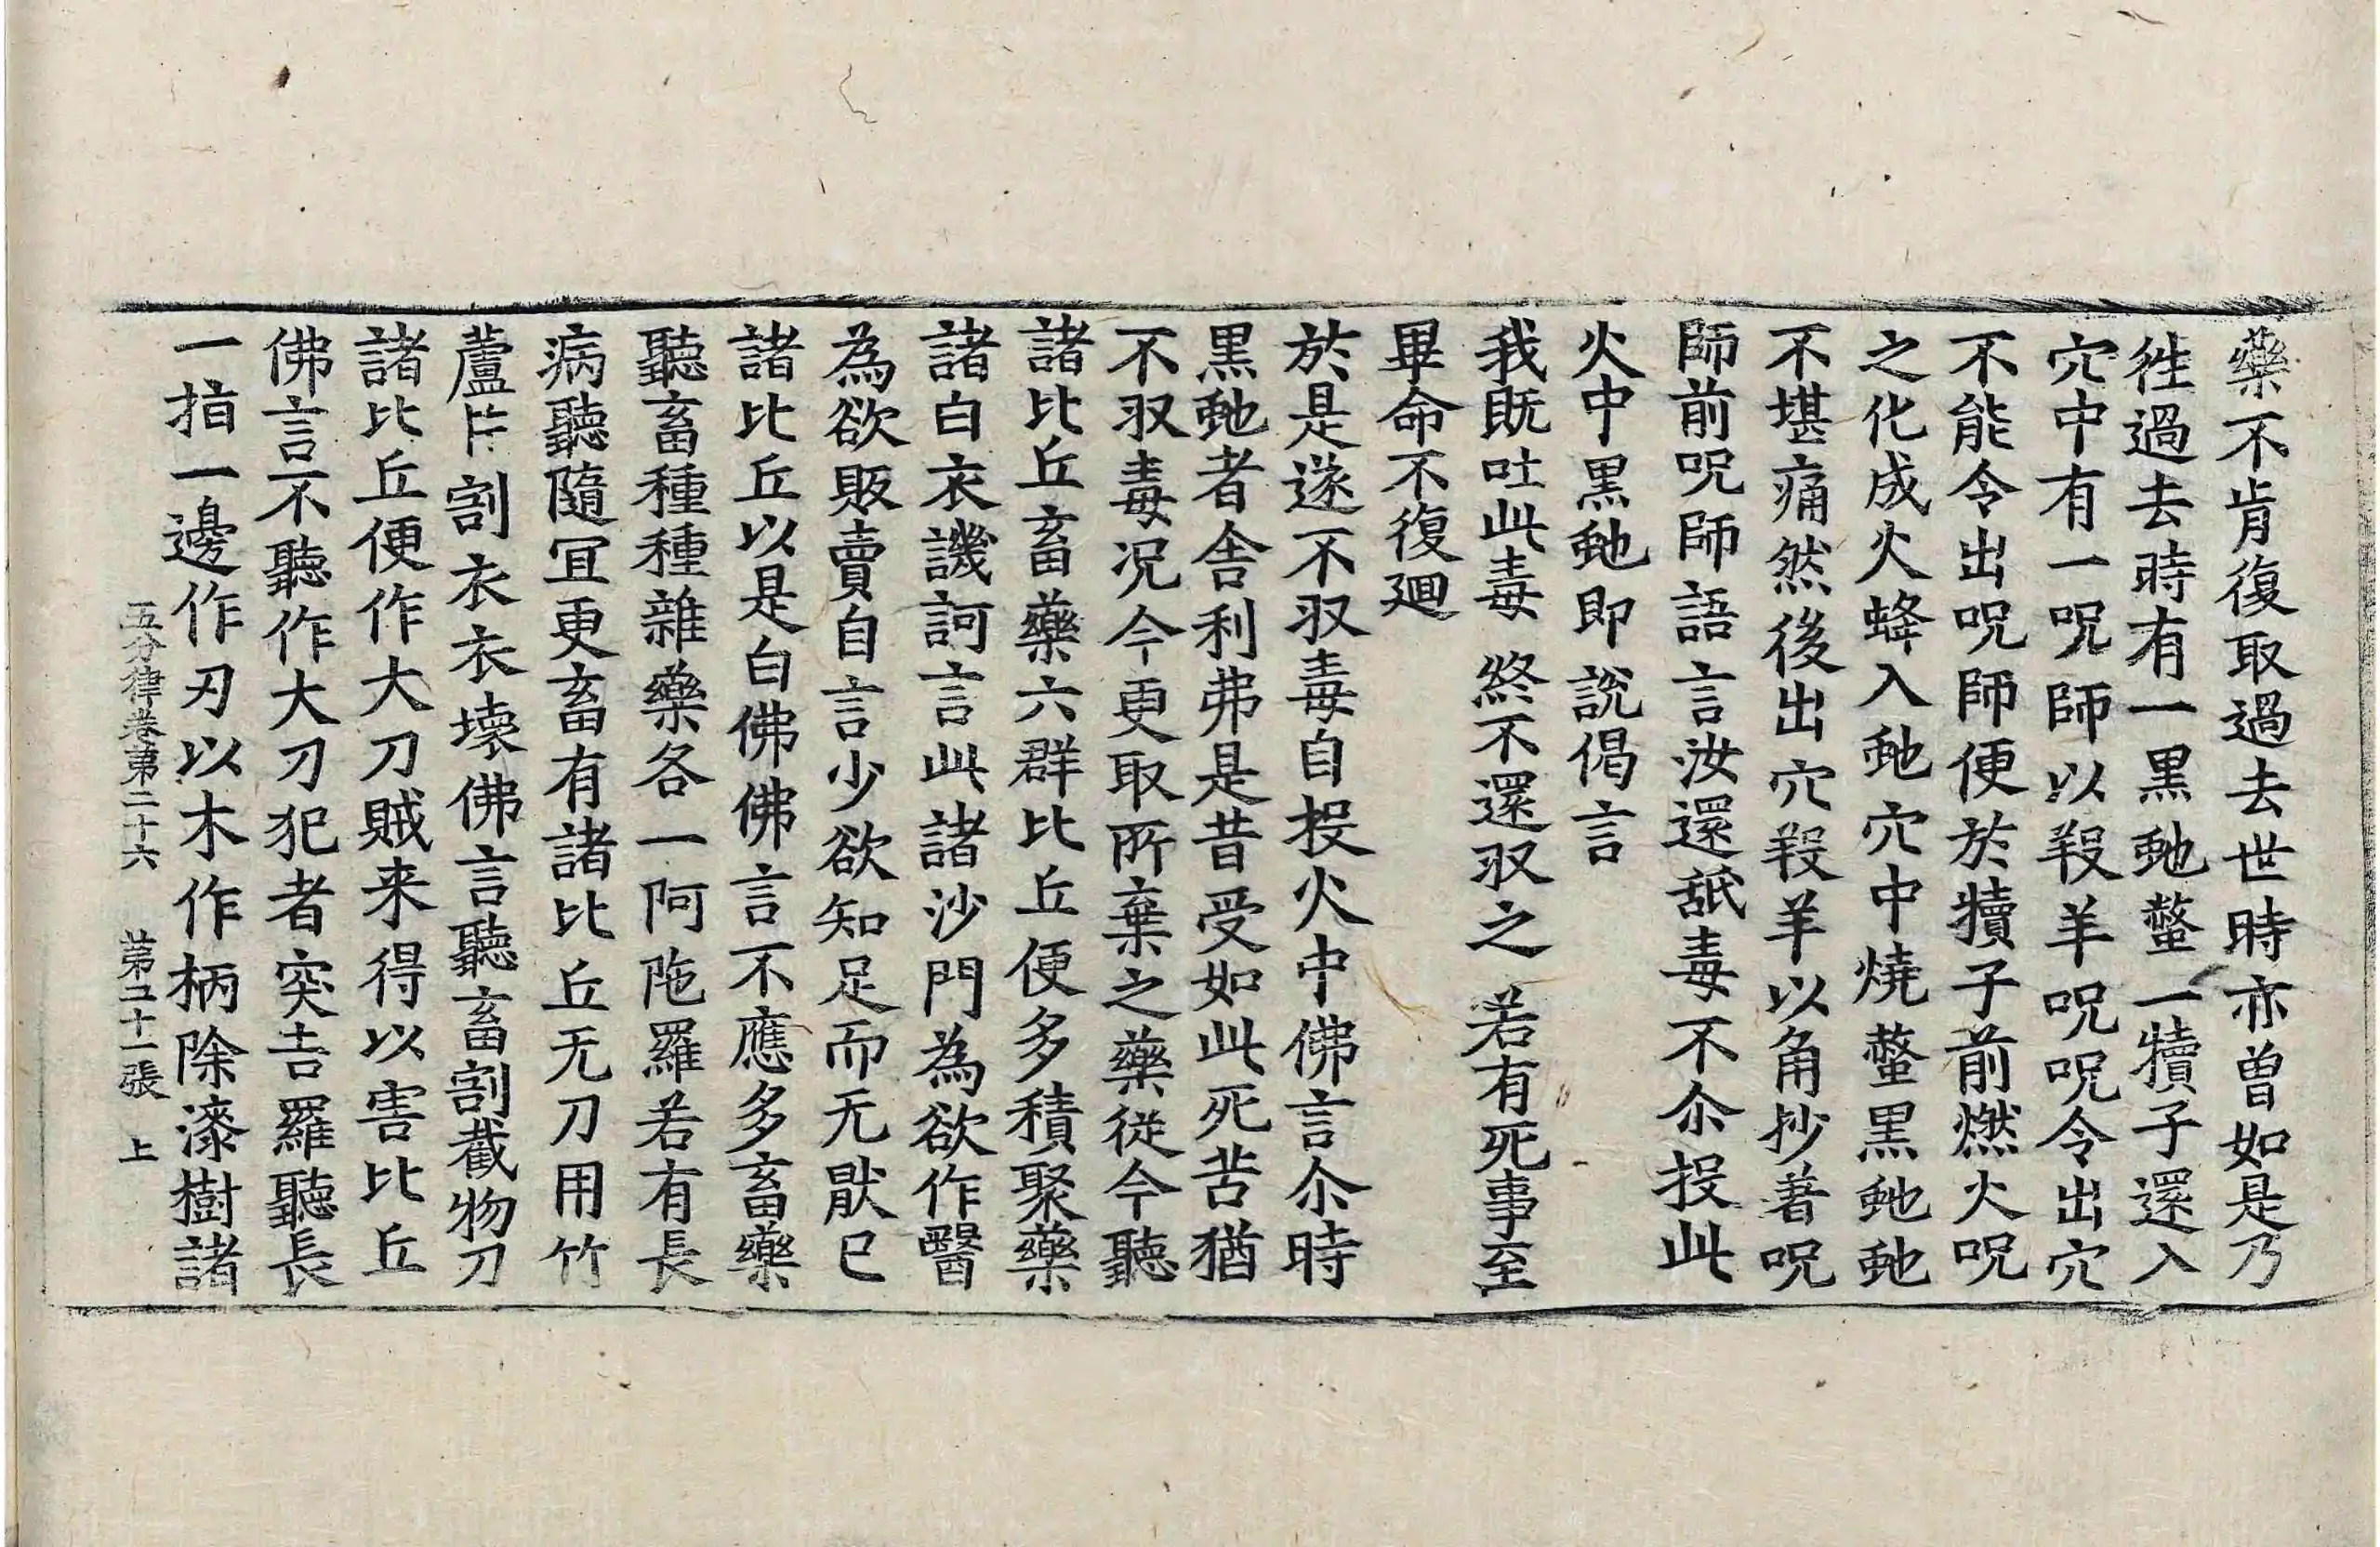 藥不肯復取過去世時亦曽如是乃
徃過去時有一黒虵螫一犢子還入
穴中有一呪師以羖羊呪呪令出穴
不能令出呪師便於犢子前燃火呪
之化成火蜂入虵穴中燒螫黒虵虵
不堪痛然後出穴羖羊以角抄著呪
師前呪師語言汝還舐毒不尒投此
火中黒虵即説偈言
我既吐此毒 終不還㕛之 若有死事至
畢命不復𢌞
於是遂不㕛毒自投火中佛言尒時
黒虵者舎利弗是昔受如此死苦猶
不㕛毒况今更取所棄之藥從今聽
諸比丘畜藥六群比丘便多積聚藥
諸白衣譏訶言此諸沙門為欲作醫
為欲販賣自言少欲知足而无猒已
諸比丘以是白佛佛言不應多畜藥
聽畜種種雜藥各一阿陁羅若有長
病聽隨冝更畜有諸比丘无刀用竹
蘆片割衣衣壞佛言聽畜割截物刀
諸比丘便作大刀賊来得以害比丘
佛言不聽作大刀犯者突吉羅聽長
一指一邊作刃以木作柄除漆樹諸
五分律卷第二十六 第二十一張 上